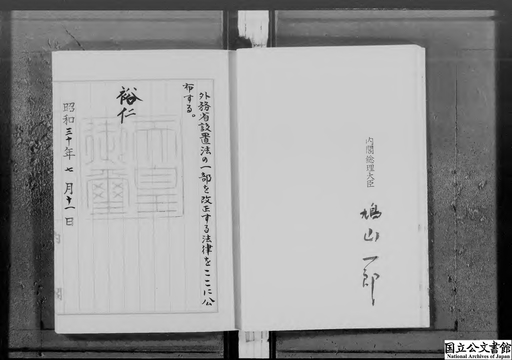 内閣総理大臣
鳩山一郎
外務省設置法の一部を改正する法律をここに公
布する。
裕仁
天皇
御璽
昭和三十年七月十一日
国立公文書館
National Archives of Japan